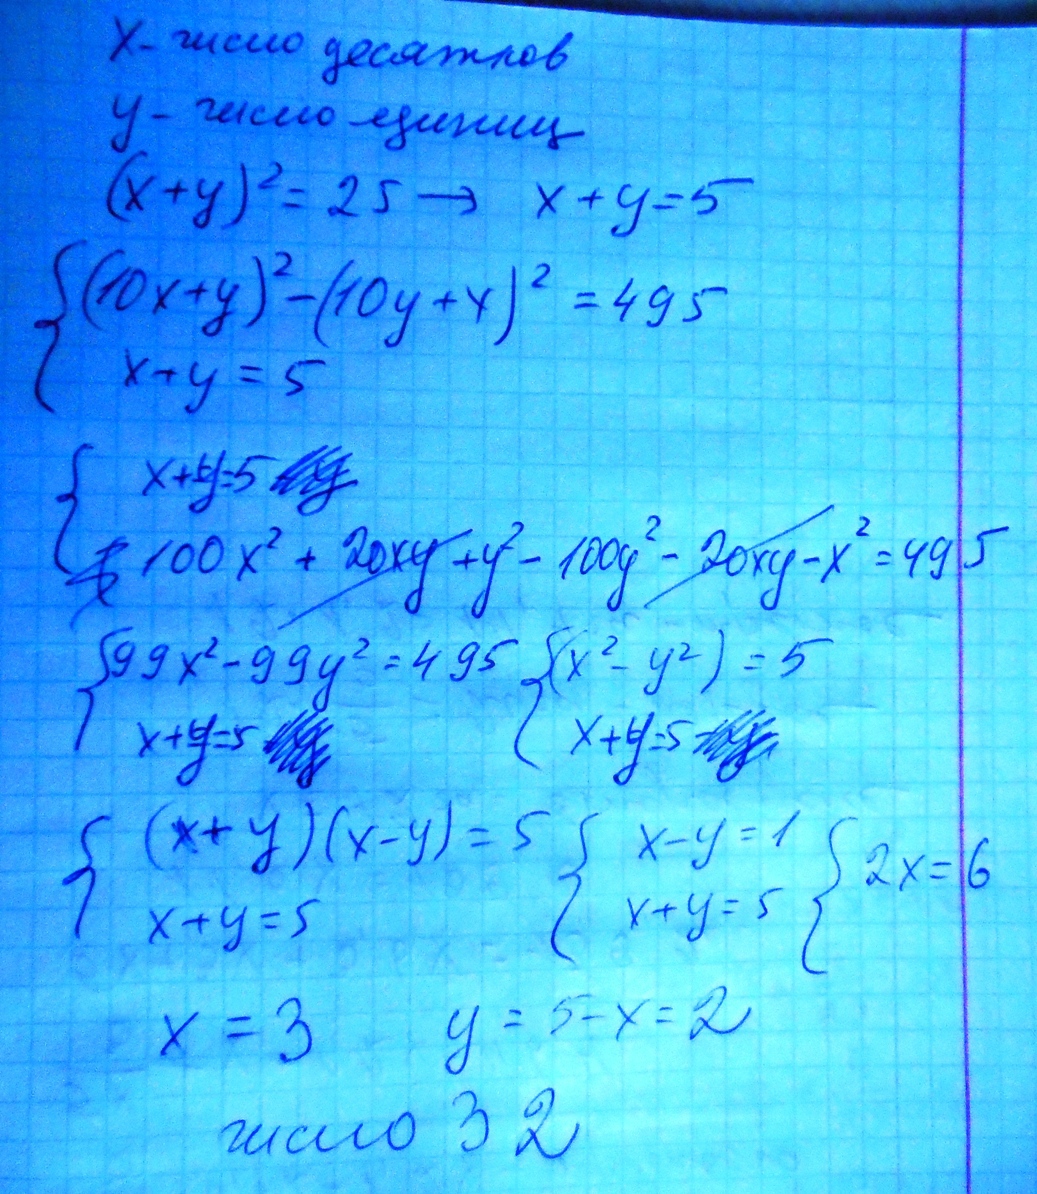 x - число десятков
y - число единиц
(x+y)² = 25 → x+y=5
{(10x+y)² - (10y+x)² = 495
x+y = 5
{x+y=5
100x² + 20xy + y² - 100y² - 20xy - x² = 495
{99x² - 99y² = 495 {(x² - y²) = 5
x+y=5 x+y=5
{(x+y)(x-y) = 5 {x-y=1 {2x=6
x+y=5 x+y=5
x = 3 y = 5-x = 2
число 32